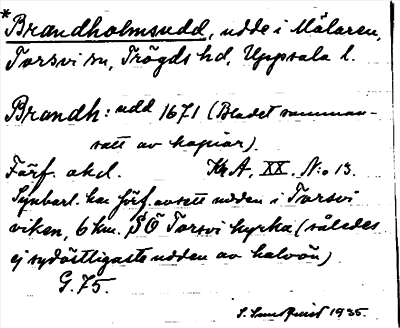 *Brandholmsudd, udde i Mälaren,
Torsvi sn, Trögds hd, Uppsala l.
Brandh: udd 1671 (Bladet samman-
satt av kopior).
Förf. okd. KrA, XX. N:o 13.
Synbarl. har förf. avsett udden i Torsvi
viken, 6 km. SÖ Torsvi kyrka (således
ej sydöstligaste udden av halvön)
G. 75.
S. Lundquist 1935.